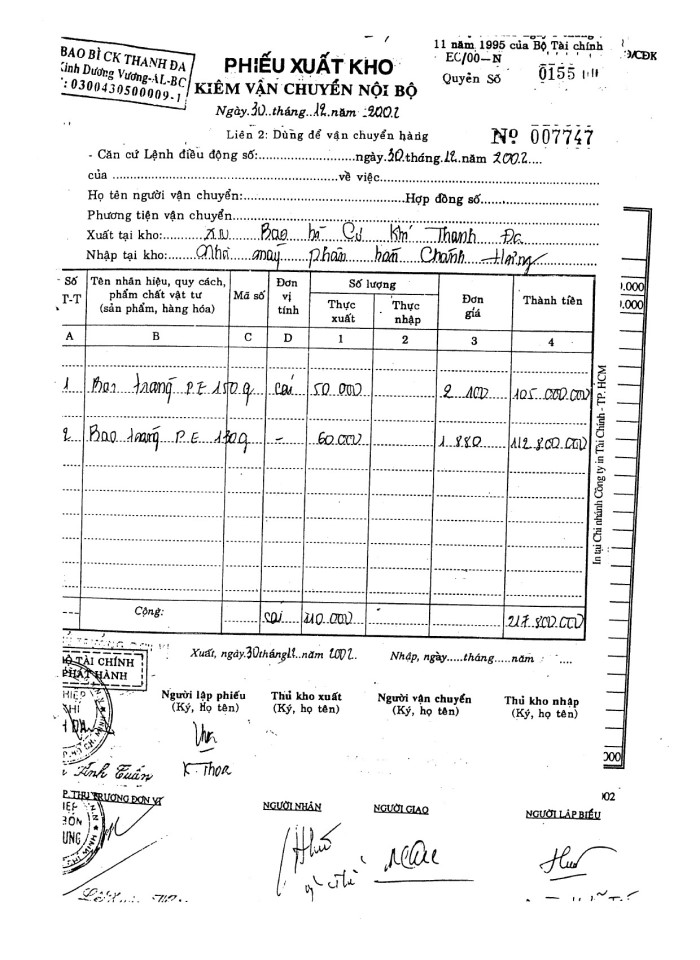 11 năm 1995 của Bộ Tài chính
BAO BÌ CK THANH ĐA
Kinh Dương Vương-AL-BC
: 0300430500009-1
PHIẾU XUẤT KHO
EC/00-N
MCĐK
KIÊM VẬN CHUYỂN NỘI BỘ
Quyển Số 0155
Ngày 30 tháng 12 năm 2002
Liên 2: Dùng để vận chuyển hàng
Nº 007747
- Căn cứ Lệnh điều động số:............ngày 30 tháng 12 năm 2002
của ............về việc............
Họ tên người vận chuyển:............Hợp đồng số............
Phương tiện vận chuyển............
Xuất tại kho: X.N Bao bì Cơ Khí Thanh Đa
Nhập tại kho: Nhà máy phân bón Chánh Hưng
Số T-T | Tên nhãn hiệu, quy cách, phẩm chất vật tư (sản phẩm, hàng hóa) | Mã số | Đơn vị tính | Số lượng | Thực xuất | Thực nhập | Đơn giá | Thành tiền
A B C D 1 2 3 4
1 Bao trắng P.E 150g cái 50 000 2 100 105 000.000
2 Bao trắng P.E 130g - 60.000 1 880 112 800 000
Cộng: cái 110.000 217.800.000
In tại Chi nhánh Công ty in Tài Chính - TP. HCM
Xuất, ngày 30 tháng 12 năm 2002.
Nhập, ngày.....tháng.....năm
BỘ TÀI CHÍNH
PHÁT HÀNH
Người lập phiếu
(Ký, Họ tên)
Thủ kho xuất
(Ký, họ tên)
Người vận chuyển
(Ký, họ tên)
Thủ kho nhập
(Ký, họ tên)
K. Thoa
Tuấn
P. THỦ TRƯỞNG ĐƠN VỊ
NGƯỜI NHẬN
NGƯỜI GIAO
NGƯỜI LẬP BIỂU